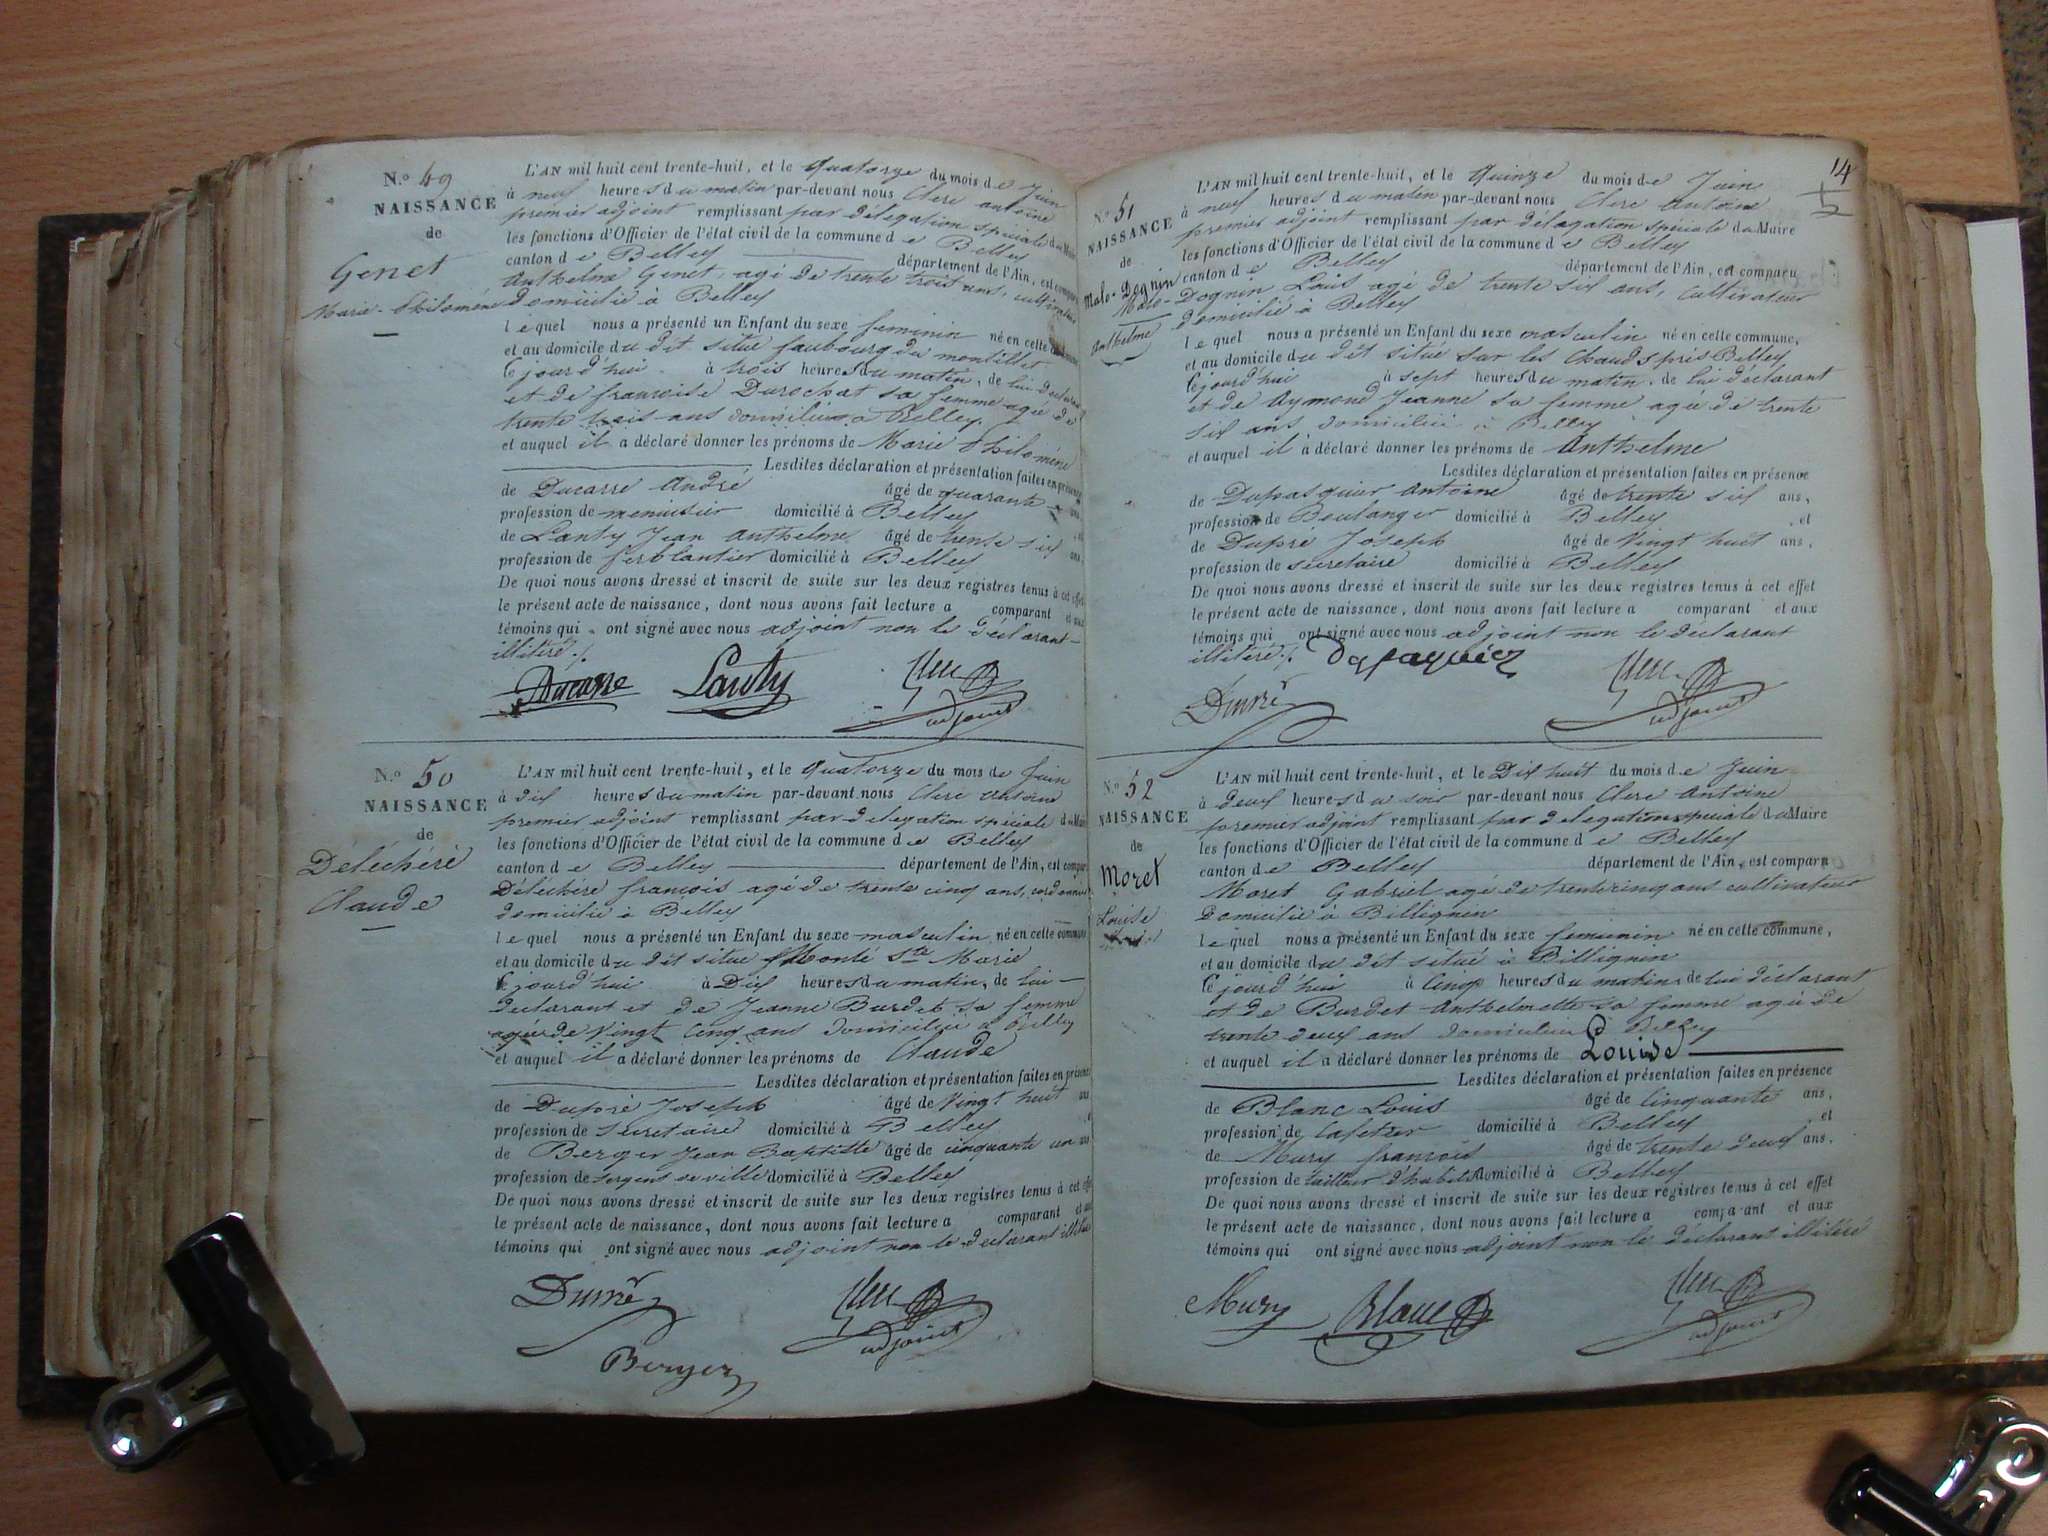 N.º 49
NAISSANCE
de
Genet
Marie-Philomène
L'AN mil huit cent trente-huit, et le Quatorze du mois de Juin
à neuf heures du matin par-devant nous Clerc antoine
premier adjoint remplissant par délégation spéciale du Maire
les fonctions d'Officier de l'état civil de la commune de Belley
canton de Belley département de l'Ain, est comparu
Anthelme Genet, agé de trente trois ans, cultivateur
domicilié à Belley
lequel nous a présenté un Enfant du sexe feminin né en cette commune,
et au domicile du dit situé faubourg du montillet
Cejourd'hui à trois heures du matin, de lui déclarant
et de francoise Durochat sa femme agée de
trente trois ans domiciliée à Belley
et auquel il a déclaré donner les prénoms de Marie Philomène
Lesdites déclaration et présentation faites en présence
de Ducarre André âgé de quarante ans,
profession de menuisier domicilié à Belley et
de Lanty Jean Anthelme âgé de trente six ans,
profession de ferblantier domicilié à Belley
De quoi nous avons dressé et inscrit de suite sur les deux registres tenus à cet effet
le présent acte de naissance, dont nous avons fait lecture a comparant et aux
témoins qui ont signé avec nous adjoint non le déclarant
illitéré ./.
Ducarre Lanty Clerc
adjoint
N.º 50
NAISSANCE
de
Déléchéré
Claude
L'AN mil huit cent trente-huit, et le Quatorze du mois de Juin
à dix heures du matin par-devant nous Clerc Antoine
premier adjoint remplissant par délegation spéciale du Maire
les fonctions d'Officier de l'état civil de la commune de Belley
canton de Belley département de l'Ain, est comparu
Déléchéré francois agé de trente cinq ans, cordonnier
domicilié à Belley
lequel nous a présenté un Enfant du sexe masculin né en cette commune
et au domicile du dit situé Monté Ste Marie
Cejourd'hui à Dix heures du matin, de lui
declarant et de Jeanne Burdet sa femme
agée de Vingt Cinq ans domiciliée à Belley
et auquel il a déclaré donner les prénoms de Claude
Lesdites déclaration et présentation faites en présence
de Dupré Joseph âgé de Vingt huit ans
profession de secretaire domicilié à Belley et
de Berger Jean Baptiste âgé de cinquante un ans
profession de sergent de ville domicilié à Belley
De quoi nous avons dressé et inscrit de suite sur les deux registres tenus à cet effet
le présent acte de naissance, dont nous avons fait lecture a comparant et aux
témoins qui ont signé avec nous adjoint non le déclarant illitéré
Dupré Clerc
adjoint
Berger
14
N.º 51
NAISSANCE
de
Malo-Dognin
Anthelme
L'AN mil huit cent trente-huit, et le Quinze du mois de Juin
à neuf heures du matin par-devant nous Clerc Antoine
premier adjoint remplissant par délégation speciale du Maire
les fonctions d'Officier de l'état civil de la commune de Belley
canton de Belley département de l'Ain, est comparu
Malo-Dognin Louis agé de trente six ans, Cultivateur
domicilié à Belley
lequel nous a présenté un Enfant du sexe masculin né en cette commune,
et au domicile du dit situé sur les Chauds près Belley
Cejourd'hui à sept heures du matin, de lui déclarant
et de Aymond Jeanne sa femme agée de trente
six ans domiciliée à Belley
et auquel il a déclaré donner les prénoms de Anthelme
Lesdites déclaration et présentation faites en présence
de Dupasquier Antoine âgé de trente six ans,
profession de Boulanger domicilié à Belley et
de Dupré Joseph âgé de Vingt huit ans,
profession de secretaire domicilié à Belley
De quoi nous avons dressé et inscrit de suite sur les deux registres tenus à cet effet
le présent acte de naissance, dont nous avons fait lecture a comparant et aux
témoins qui ont signé avec nous adjoint non le déclarant
illitéré ./. Dupaquier Clerc
Dupré adjoint
N.º 52
NAISSANCE
de
Moret
Louise
L'AN mil huit cent trente-huit, et le Dix huit du mois de Juin
à deux heures du soir par-devant nous Clerc Antoine
premier adjoint remplissant par délegation speciale du Maire
les fonctions d'Officier de l'état civil de la commune de Belley
canton de Belley département de l'Ain, est comparu
Moret Gabriel agé de trente cinq ans cultivateur
Domicilié à Billignin
lequel nous a présenté un Enfant du sexe feminin né en cette commune,
et au domicile du dit situé à Billignin
Cejourd'hui à Cinq heures du matin, de lui déclarant
et de Burdet Anthelmette sa femme agée de
trente deux ans domiciliée à Belley
et auquel il a déclaré donner les prénoms de Louise
Lesdites déclaration et présentation faites en présence
de Blanc Louis âgé de Cinquante ans,
profession de Cafetier domicilié à Belley et
de Mury francois âgé de trente deux ans.
profession de tailleur d'habits domicilié à Belley
De quoi nous avons dressé et inscrit de suite sur les deux registres tenus à cet effet
le présent acte de naissance, dont nous avons fait lecture a comparant et aux
témoins qui ont signé avec nous adjoint non le déclarant illitéré
Mury Blanc Clerc
adjoint